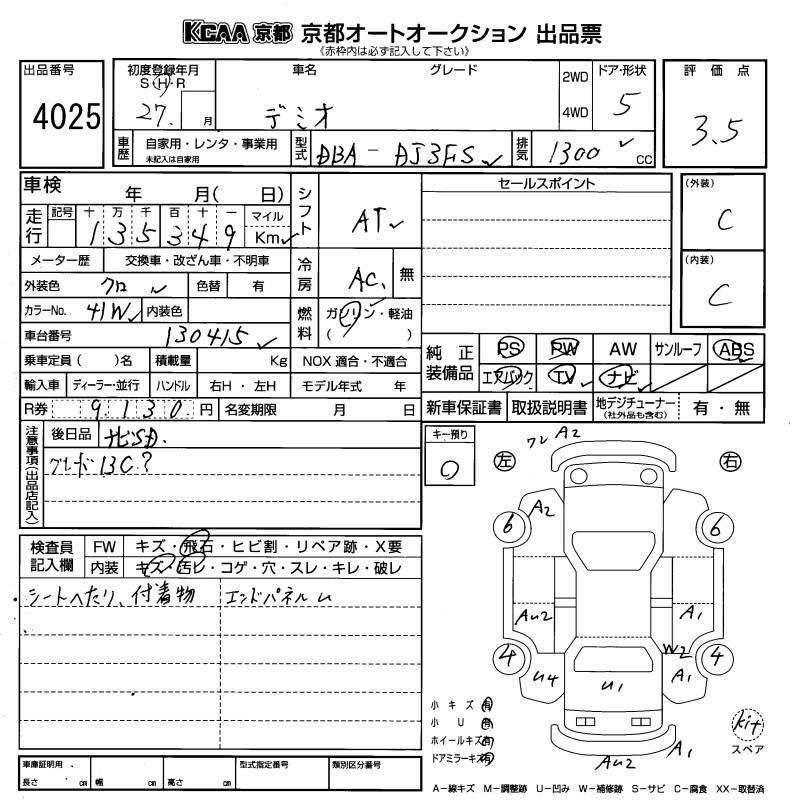 KCAA 京都 京都オートオークション 出品票
《赤枠内は必ず記入して下さい》
出品番号
4025
初度登録年月
S・H・R
27. 月
車名 グレード
デミオ
2WD
4WD
ドア・形状
5
評価点
3.5
車歴 自家用・レンタ・事業用
未記入は自家用
型式 DBA-DJ3FS
排気 1300 cc
車検 年 月( 日)
走行 記号 十 万 千 百 十 一 マイル
1 3 5 3 4 9 Km
メーター歴 交換車・改ざん車・不明車
外装色 クロ 色替 有
カラーNo. 41W 内装色
車台番号 130415
乗車定員( )名 積載量 Kg
輸入車 ディーラー・並行 ハンドル 右H・左H
R券 9130円 名変期限 月 日
シフト AT
冷房 AC. 無
燃料 ガソリン・軽油
( )
NOX 適合・不適合
モデル年式 年
セールスポイント
(外装)
C
(内装)
C
純正装備品 PS PW AW サンルーフ ABS
エアバック TV ナビ
新車保証書 取扱説明書 地デジチューナー
(社外品も含む) 有・無
注意事項(出品店記入)
後日品 ナビSD.
グレード13C?
キー預り
0
検査員記入欄 FW キズ・飛石・ヒビ割・リペア跡・X要
内装 キズ・汚レ・コゲ・穴・スレ・キレ・破レ
シートへたり、付着物 エンドパネルU
左 右
ワレ A2
A2
6 6
AU2 A1
4 W2 4
U4 U1 A1
AU2 A1
小キズ 有
小U 有
ホイールキズ 有
ドアミラーキズ 有
kit
スペア
車庫証明用 型式指定番号 類別区分番号
長さ cm 幅 cm 高さ cm
A-線キズ M-調整跡 U-凹み W-補修跡 S-サビ C-腐食 XX-取替済